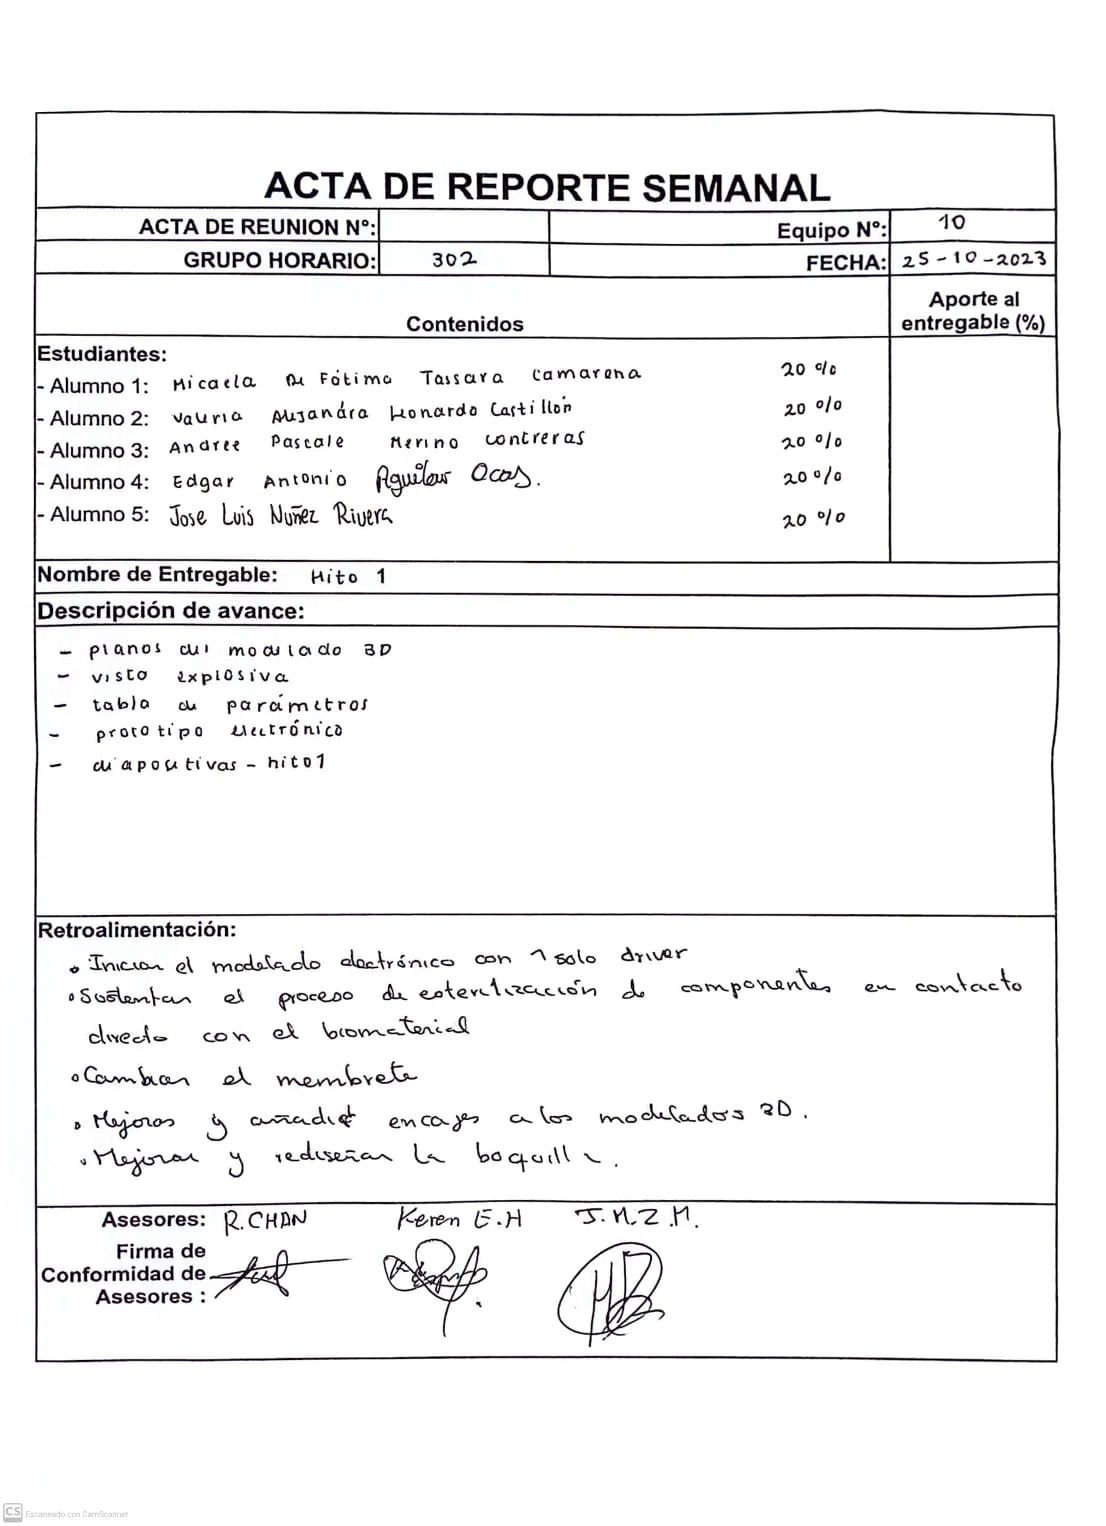 ACTA DE REPORTE SEMANAL
ACTA DE REUNION N°:
Equipo N°: 10
GRUPO HORARIO: 302
FECHA: 25-10-2023
Contenidos
Aporte al
entregable (%)
Estudiantes:
- Alumno 1: Micaela De Fátima Tassara Camarena 20 %
- Alumno 2: Valeria Alejandra Leonardo Castillón 20 %
- Alumno 3: Andree Pascale Merino Contreras 20 %
- Alumno 4: Edgar Antonio Aguilar Ocas. 20 %
- Alumno 5: Jose Luis Nuñez Rivera 20 %
Nombre de Entregable: Hito 1
Descripción de avance:
- planos del modelado 3D
- vista explosiva
- tabla de parámetros
- prototipo electrónico
- diapositivas - hito 1
Retroalimentación:
• Iniciar el modelado electrónico con 1 solo driver
• Sustentar el proceso de esterilización de componentes en contacto
directo con el biomaterial
• Cambiar el membrete
• Mejorar y añadir encajes a los modelados 3D.
• Mejorar y rediseñar la boquilla.
Asesores: R.CHAN Keren E.H J.M.Z.M.
Firma de
Conformidad de
Asesores :
CS Escaneado con CamScanner